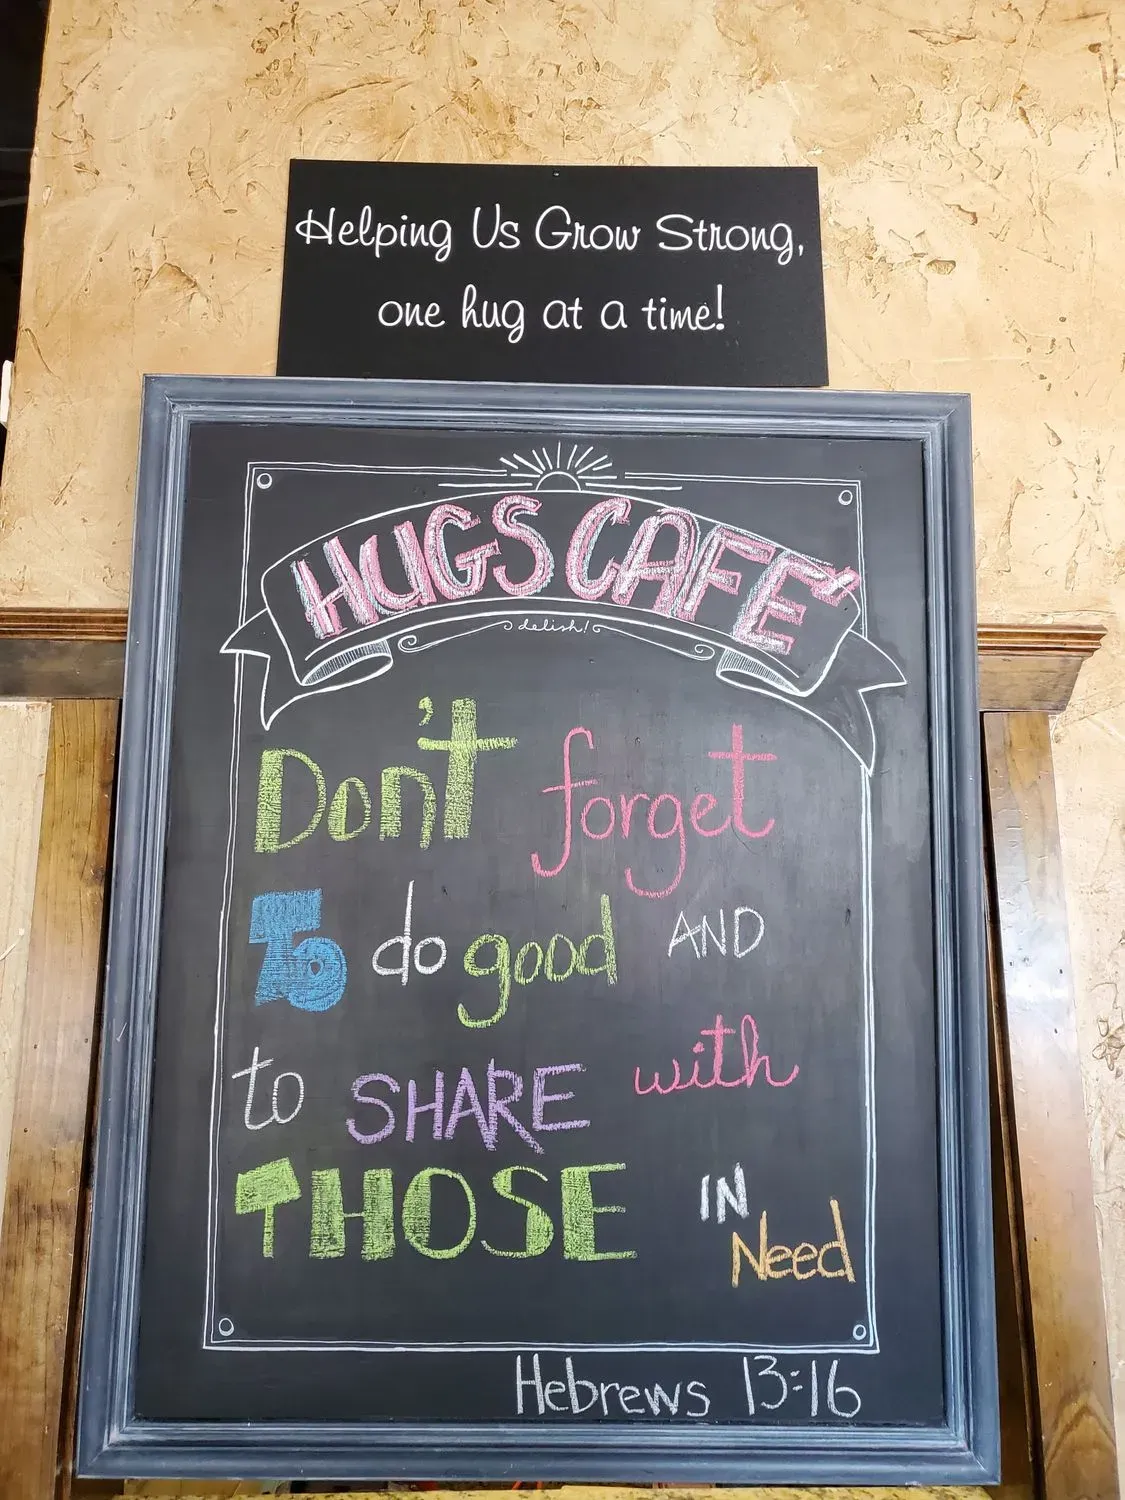 Helping Us Grow Strong,
one hug at a time!
HUGS CAFE'
delish!
Don't forget
To do good AND
to SHARE with
THOSE IN
Need
Hebrews 13:16